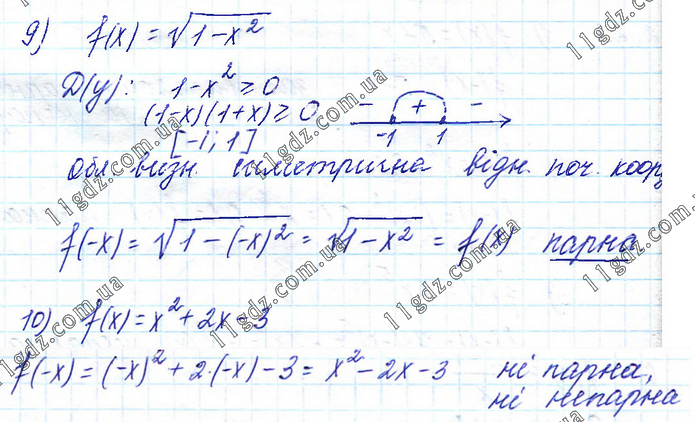 9) f(x) = √(1-x²)
D(y): 1-x² ≥ 0
(1-x)(1+x) ≥ 0
[-1; 1]
- + -
-1 1
Обл. визн. симетрична відн. поч. коор
f(-x) = √(1-(-x)²) = √(1-x²) = f(x) парна
10) f(x) = x² + 2x - 3
f(-x) = (-x)² + 2·(-x) - 3 = x² - 2x - 3 ні парна,
ні непарна
11gdz.com.ua
11gdz.com.ua
11gdz.com.ua
11gdz.com.ua
11gdz.com.ua
11gdz.com.ua
11gdz.com.ua